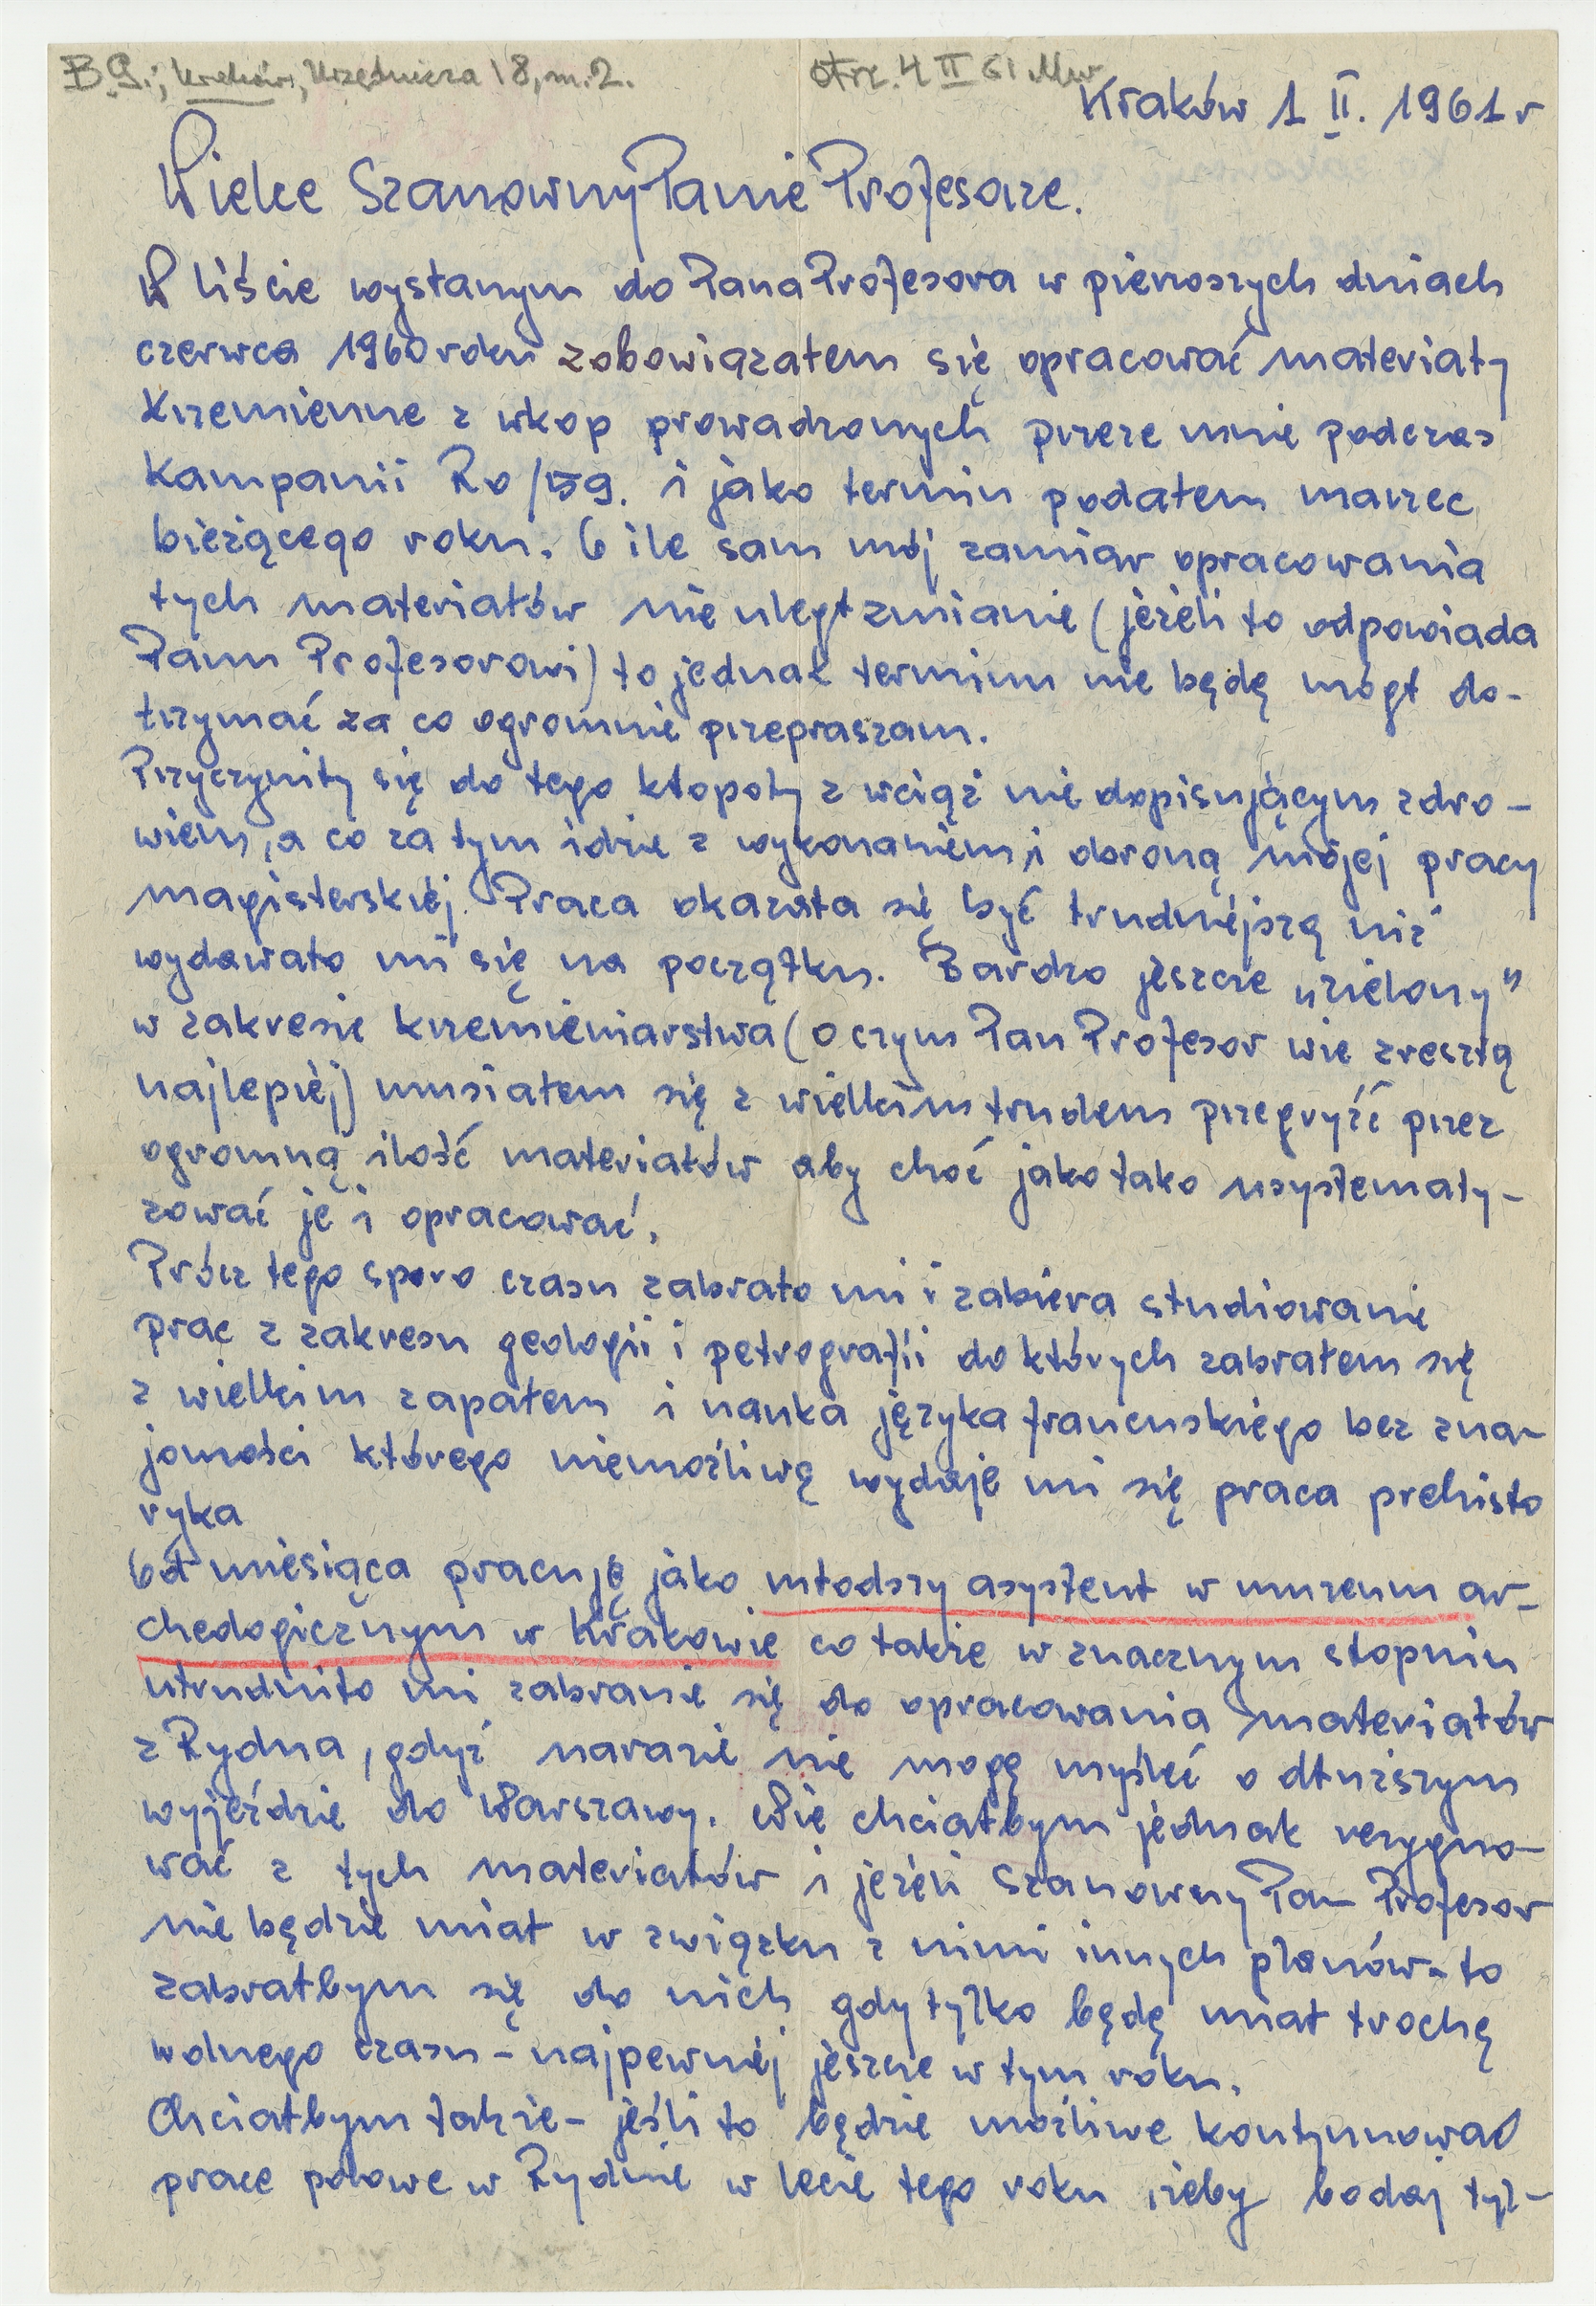 B.G.; Kraków, Urzędnicza 18, m. 2.
otrz. 4 II 61 Mw
Kraków 1 II. 1961 r
Wielce Szanowny Panie Profesorze.
W liście wysłanym do Pana Profesora w pierwszych dniach
czerwca 1960 roku zobowiązałem się opracować materiały
krzemienne z wkop prowadzonych przeze mnie podczas
kampanii Ro/59. i jako termin podałem marzec
bieżącego roku. O ile sam mój zamiar opracowania
tych materiałów nie uległ zmianie (jeżeli to odpowiada
Panu Profesorowi) to jednak terminu nie będę mógł do-
trzymać za co ogromnie przepraszam.
Przyczyniły się do tego kłopoty z wciąż nie dopisującym zdro-
wiem, a co za tym idzie z wykonaniem i obroną mojej pracy
magisterskiej. Praca okazała się być trudniejszą niż
wydawało mi się na początku. Bardzo jeszcze „zielony”
w zakresie krzemieniarstwa (o czym Pan Profesor wie zresztą
najlepiej) musiałem się z wielkim trudem przegryźć przez
ogromną ilość materiałów aby choć jako tako usystematy-
zować je i opracować.
Prócz tego sporo czasu zabrało mi i zabiera studiowanie
prac z zakresu geologii i petrografii do których zabrałem się
z wielkim zapałem i nauka języka francuskiego bez zna-
jomości którego niemożliwą wydaje mi się praca prehisto
ryka
Od miesiąca pracuję jako młodszy asystent w muzeum ar-
cheologicznym w Krakowie co także w znacznym stopniu
utrudniło mi zabranie się do opracowania materiałów
z Rydna, gdyż narazie nie mogę myśleć o dłuższym
wyjeździe do Warszawy. Nie chciałbym jednak rezygno-
wać z tych materiałów i jeżeli Szanowny Pan Profesor
nie będzie miał w związku z nimi innych planów - to
zabrałbym się do nich gdy tylko będę miał trochę
wolnego czasu - najpewniej jeszcze w tym roku.
Chciałbym także - jeśli to będzie możliwe kontynuować
prace polowe w Rydnie w lecie tego roku, żeby bodaj tyl-